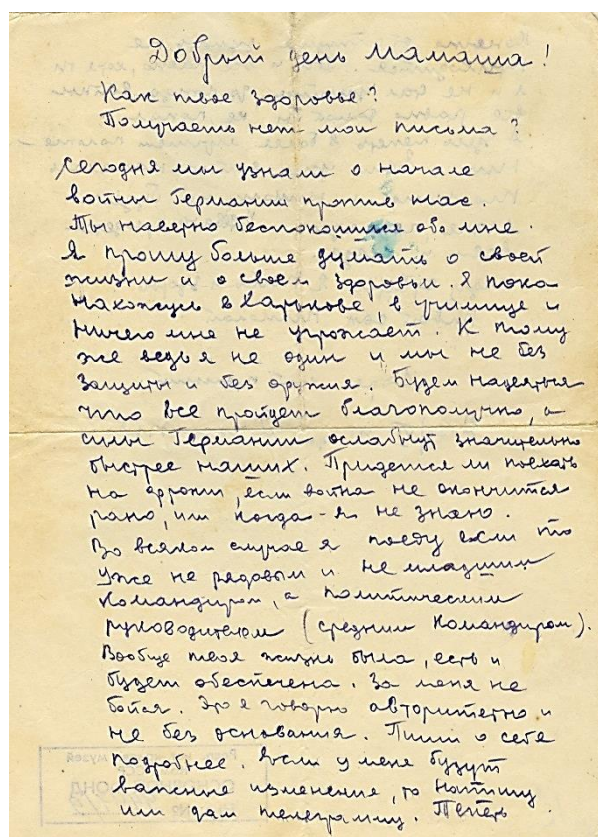 Добрый день Мамаша!
Как твое здоровье?
Получаешь нет мои письма?
Сегодня мы узнали о начале
войны Германии против нас.
Ты наверно беспокоишся обо мне.
Я прошу больше думать о своей
жизни и о своем здоровьи. Я пока
нахожусь в Харькове, в училище и
ничего мне не угрожает. К тому
же ведь я не один и мы не без
защиты и без оружия. Будем надеяться
что все пройдет благополучно, а
силы Германии ослабнут значительно
быстрее наших. Придется ли поехать
на фронт, если война не окончится
рано, или когда - я не знаю.
Во всяком случае я поеду если то
уже не рядовым и не младшим
командиром, а политическим
руководителем (средним командиром).
Вообще твоя жизнь была, есть и
будет обеспечена. За меня не
бойся. Это я говорю авторитетно и
не без основания. Пиши о себе
подробнее. Если у меня будут
важные изменения, то напишу
или дам телеграмму. Теперь